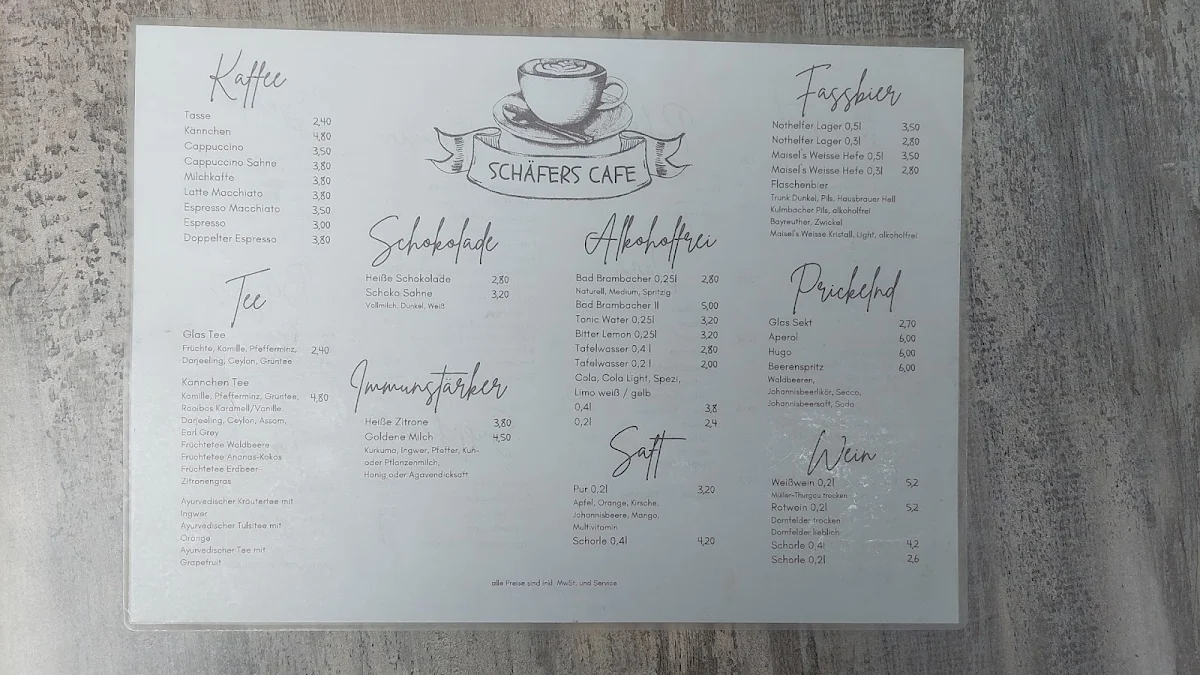 Kaffee
Tasse 2,40
Kännchen 4,80
Cappuccino 3,50
Cappuccino Sahne 3,80
Milchkaffe 3,80
Latte Macchiato 3,80
Espresso Macchiato 3,50
Espresso 3,00
Doppelter Espresso 3,80
Tee
Glas Tee
Früchte, Kamille, Pfefferminz, 2,40
Darjeeling, Ceylon, Grüntee
Kännchen Tee
Kamille, Pfefferminz, Grüntee, 4,80
Rooibos Karamell/Vanille
Darjeeling, Ceylon, Assam,
Earl Grey
Früchtetee Waldbeere
Früchtetee Ananas-Kokos
Früchtetee Erdbeer-
Zitronengras
Ayurvedischer Kräutertee mit
Ingwer
Ayurvedischer Tulsitee mit
Orange
Ayurvedischer Tee mit
Grapefruit
SCHÄFERS CAFE
Schokolade
Heiße Schokolade 2,80
Schoko Sahne 3,20
Vollmilch, Dunkel, Weiß
Immunstärker
Heiße Zitrone 3,80
Goldene Milch 4,50
Kurkuma, Ingwer, Pfeffer, Kuh-
oder Pflanzenmilch,
Honig oder Agavendicksaft
Alkoholfrei
Bad Brambacher 0,25l 2,80
Naturell, Medium, Spritzig
Bad Brambacher 1l 5,00
Tonic Water 0,25l 3,20
Bitter Lemon 0,25l 3,20
Tafelwasser 0,4 l 2,80
Tafelwasser 0,2 l 2,00
Cola, Cola Light, Spezi,
Limo weiß / gelb
0,4l 3,8
0,2l 2,4
Saft
Pur 0,2l 3,20
Apfel, Orange, Kirsche,
Johannisbeere, Mango,
Multivitamin
Schorle 0,4l 4,20
Fassbier
Nothelfer Lager 0,5l 3,50
Nothelfer Lager 0,3l 2,80
Maisel's Weisse Hefe 0,5l 3,50
Maisel's Weisse Hefe 0,3l 2,80
Flaschenbier
Trunk Dunkel, Pils, Hausbrauer Hell
Kulmbacher Pils, alkoholfrei
Bayreuther, Zwickel
Maisel's Weisse Kristall, Light, alkoholfrei
Prickelnd
Glas Sekt 2,70
Aperol 6,00
Hugo 6,00
Beerenspritz 6,00
Waldbeeren,
Johannisbeerlikör, Secco,
Johannisbeersaft, Soda
Wein
Weißwein 0,2l 5,2
Müller-Thurgau trocken
Rotwein 0,2l 5,2
Dornfelder trocken
Dornfelder lieblich
Schorle 0,4l 4,2
Schorle 0,2l 2,6
alle Preise sind inkl. MwSt. und Service